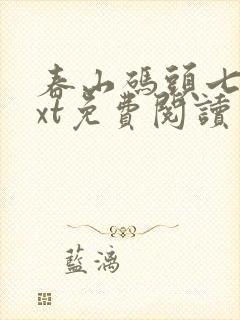 春山碼頭七
xt免費閱讀
藍漓